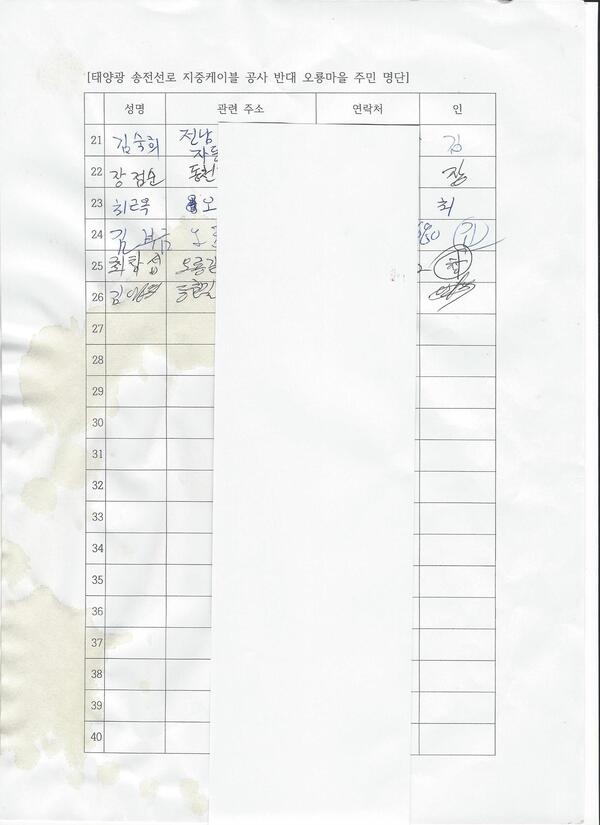 [태양광 송전선로 지중케이블 공사 반대 오룡마을 주민 명단]
성명 관련 주소 연락처 인
21 김숙희 전남 자동 김
22 장점순 동헌 장
23 최근옥 오 최
24 김 오 680
25 최학섭 오룡길
26 김 동헌길
27
28
29
30
31
32
33
34
35
36
37
38
39
40